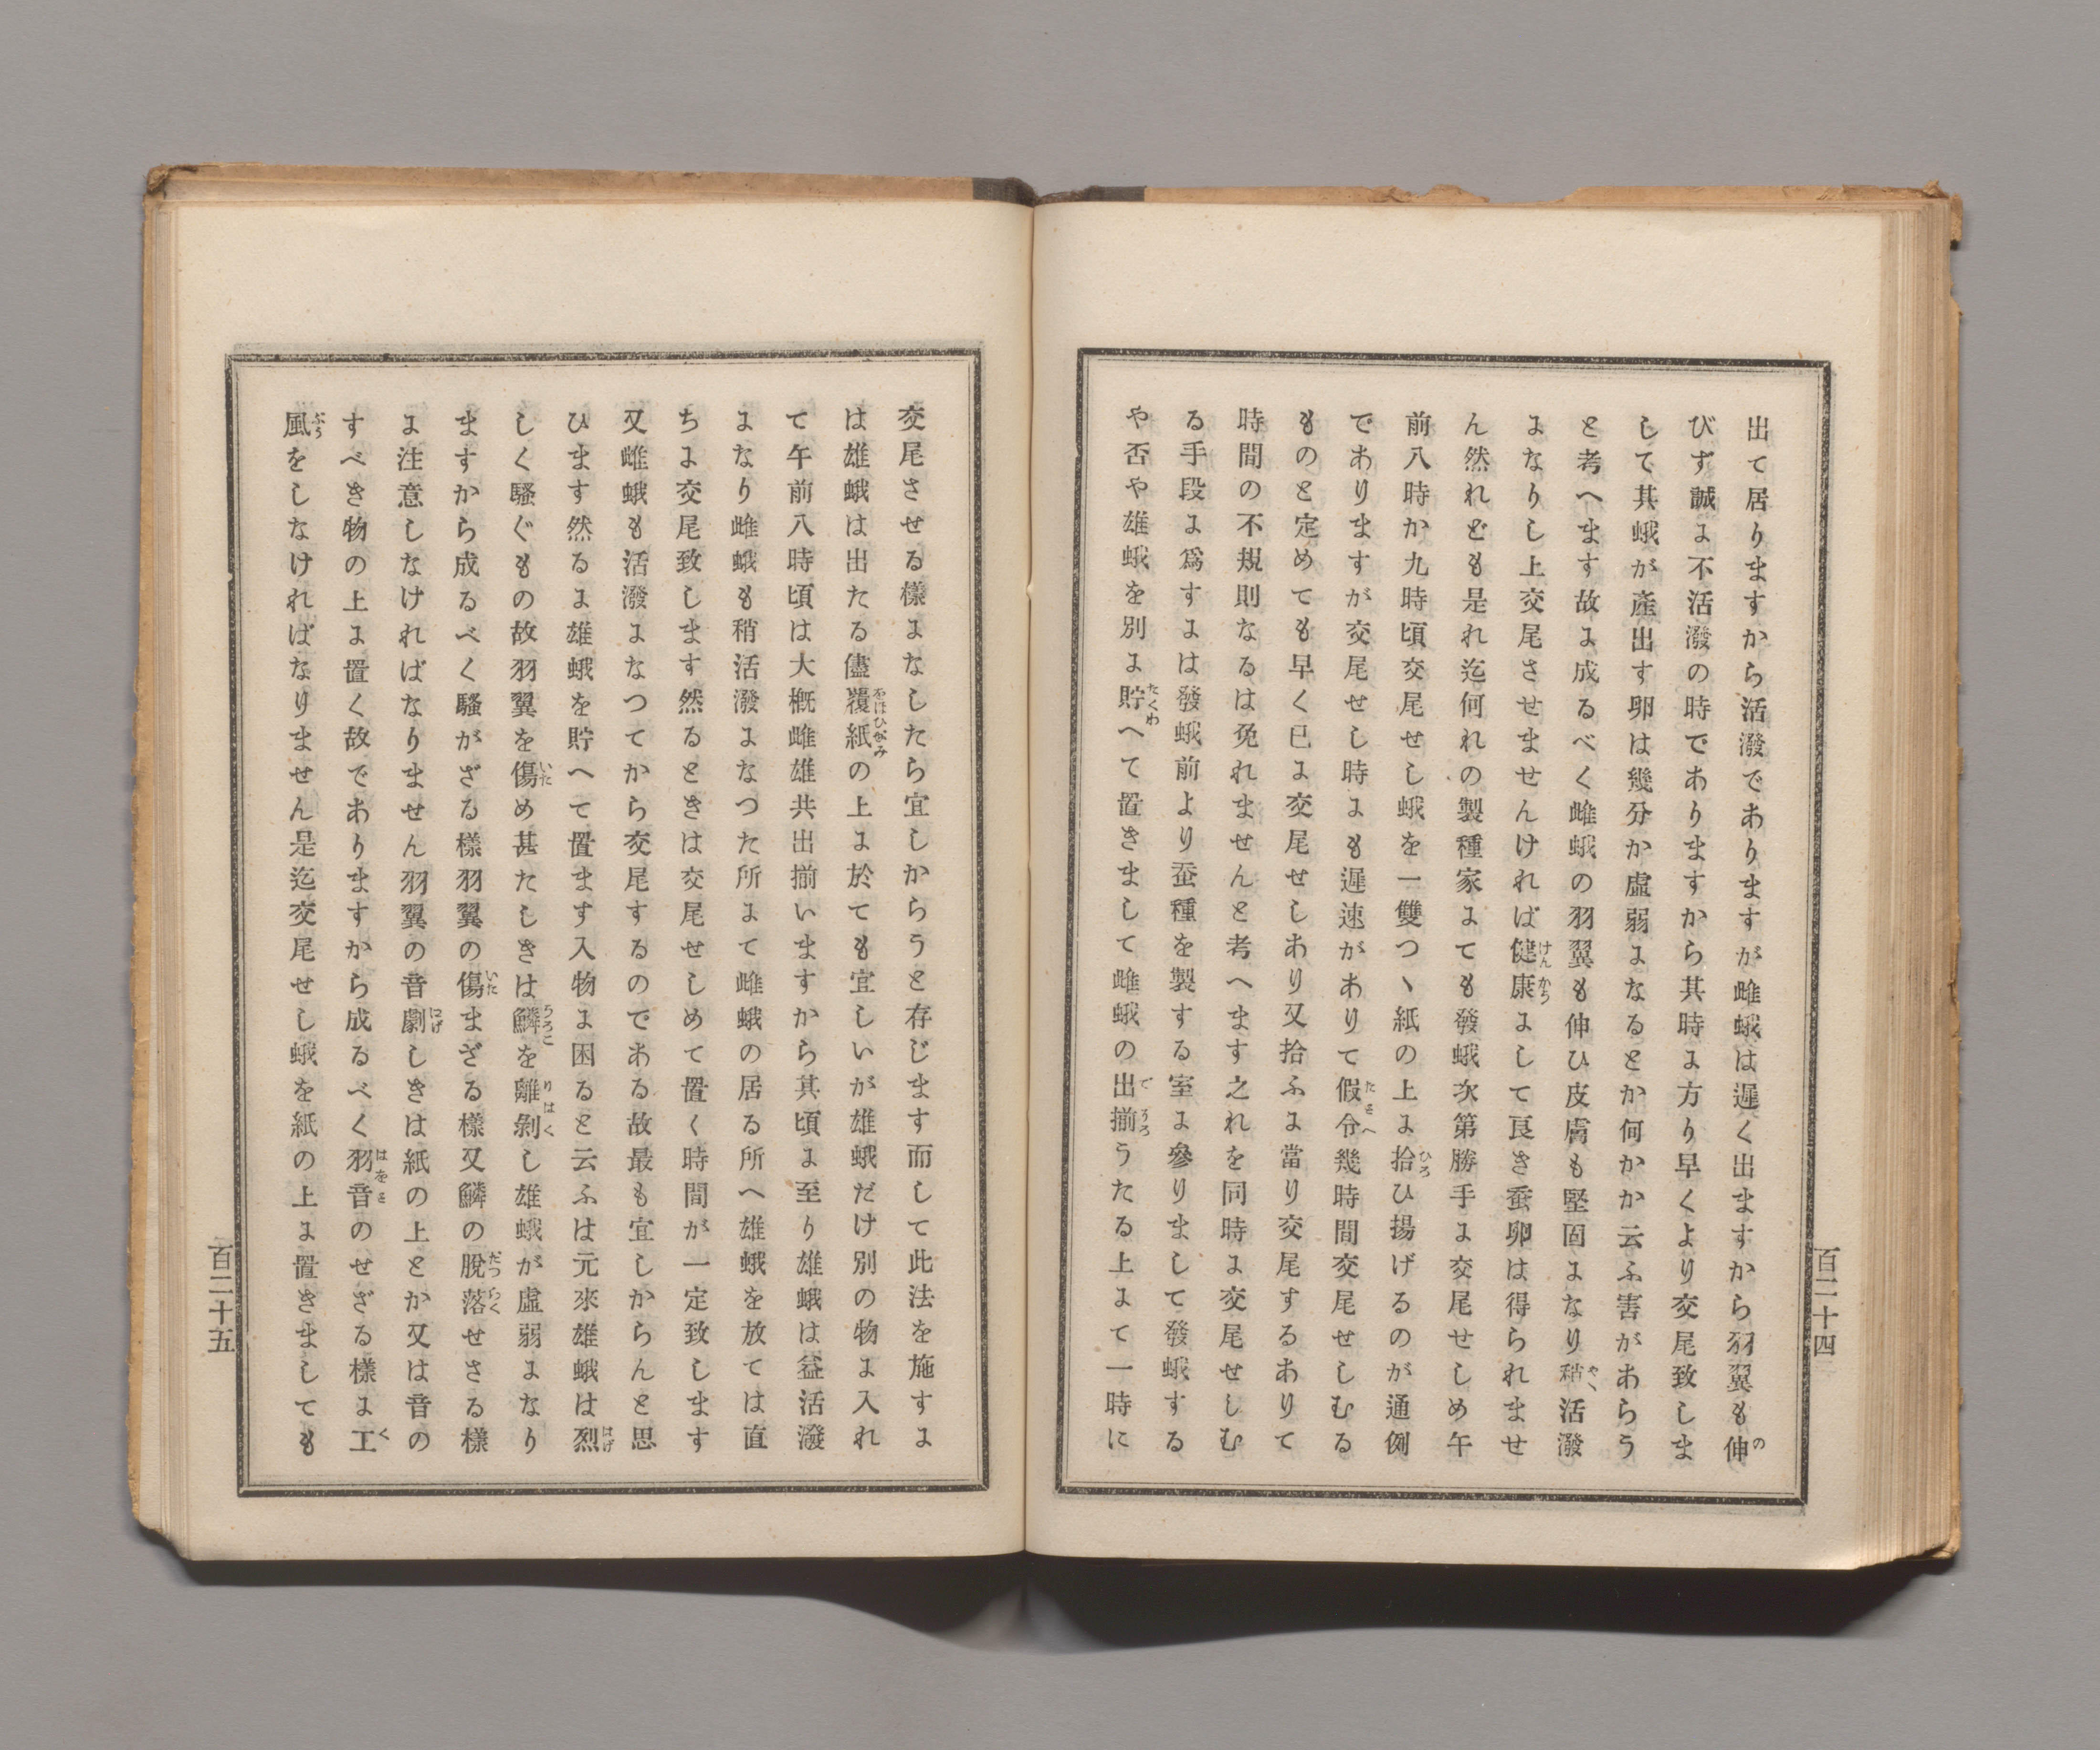 出て居りますから活潑でありますが雌蛾は遲く出ますから羽翼も伸
びず誠に不活潑の時でありますから其時に方り早くより交尾致しま
して其蛾が產出す卵は幾分か虛弱になるとか何かか云ふ害があらう
と考へます故に成るべく雌蛾の羽翼も伸ひ皮膚も堅固になり稍活潑
になりし上交尾させませんければ健康にして良き蚕卵は得られませ
ん然れども是れ迄何れの製種家にても發蛾次第勝手に交尾せしめ午
前八時か九時頃交尾せし蛾を一雙つヽ紙の上に拾ひ揚げるのが通例
でありますが交尾せし時にも遲速がありて假令幾時間交尾せしむる
ものと定めても早く已に交尾せしあり又拾ふに當り交尾するありて
時間の不規則なるは免れませんと考へます之れを同時に交尾せしむ
る手段に爲すには發蛾前より蚕種を製する室に參りまして發蛾する
や否や雄蛾を別に貯へて置きまして雌蛾の出揃うたる上にて一時に
百二十四
交尾させる樣になしたら宜しからうと存じます而して此法を施すに
は雄蛾は出たる儘覆紙の上に於ても宜しいが雄蛾だけ別の物に入れ
て午前八時頃は大槪雌雄共出揃いますから其頃に至り雄蛾は益活潑
になり雌蛾も稍活潑になつた所にて雌蛾の居る所へ雄蛾を放ては直
ちに交尾致します然るときは交尾せしめて置く時間が一定致します
又雌蛾も活潑になつてから交尾するのである故最も宜しからんと思
ひます然るに雄蛾を貯へて置ます入物に困ると云ふは元來雄蛾は烈
しく騷ぐもの故羽翼を傷め甚たしきは鱗を離剝し雄蛾が虛弱になり
ますから成るべく騷がざる樣羽翼の傷まざる樣又鱗の脫落せさる樣
に注意しなければなりません羽翼の音劇しきは紙の上とか又は音の
すべき物の上に置く故でありますから成るべく羽音のせざる樣に工
風をしなければなりません是迄交尾せし蛾を紙の上に置きましても
百二十五